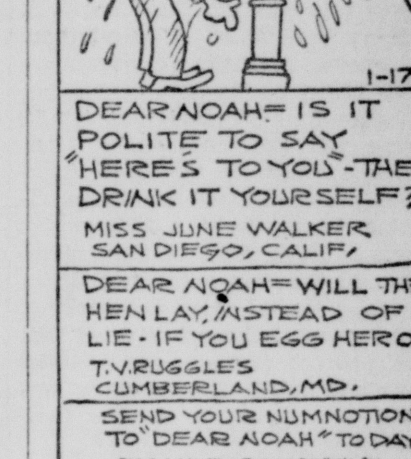 1-17
DEAR NOAH= IS IT
POLITE TO SAY
"HERE'S TO YOU"-THE
DRINK IT YOURSELF?
MISS JUNE WALKER,
SAN DIEGO, CALIF,
DEAR NOAH= WILL TH
HEN LAY, INSTEAD OF
LIE - IF YOU EGG HER O
T.V. RUGGLES
CUMBERLAND, MD.
SEND YOUR NUMNOTION
TO "DEAR NOAH" TODAY